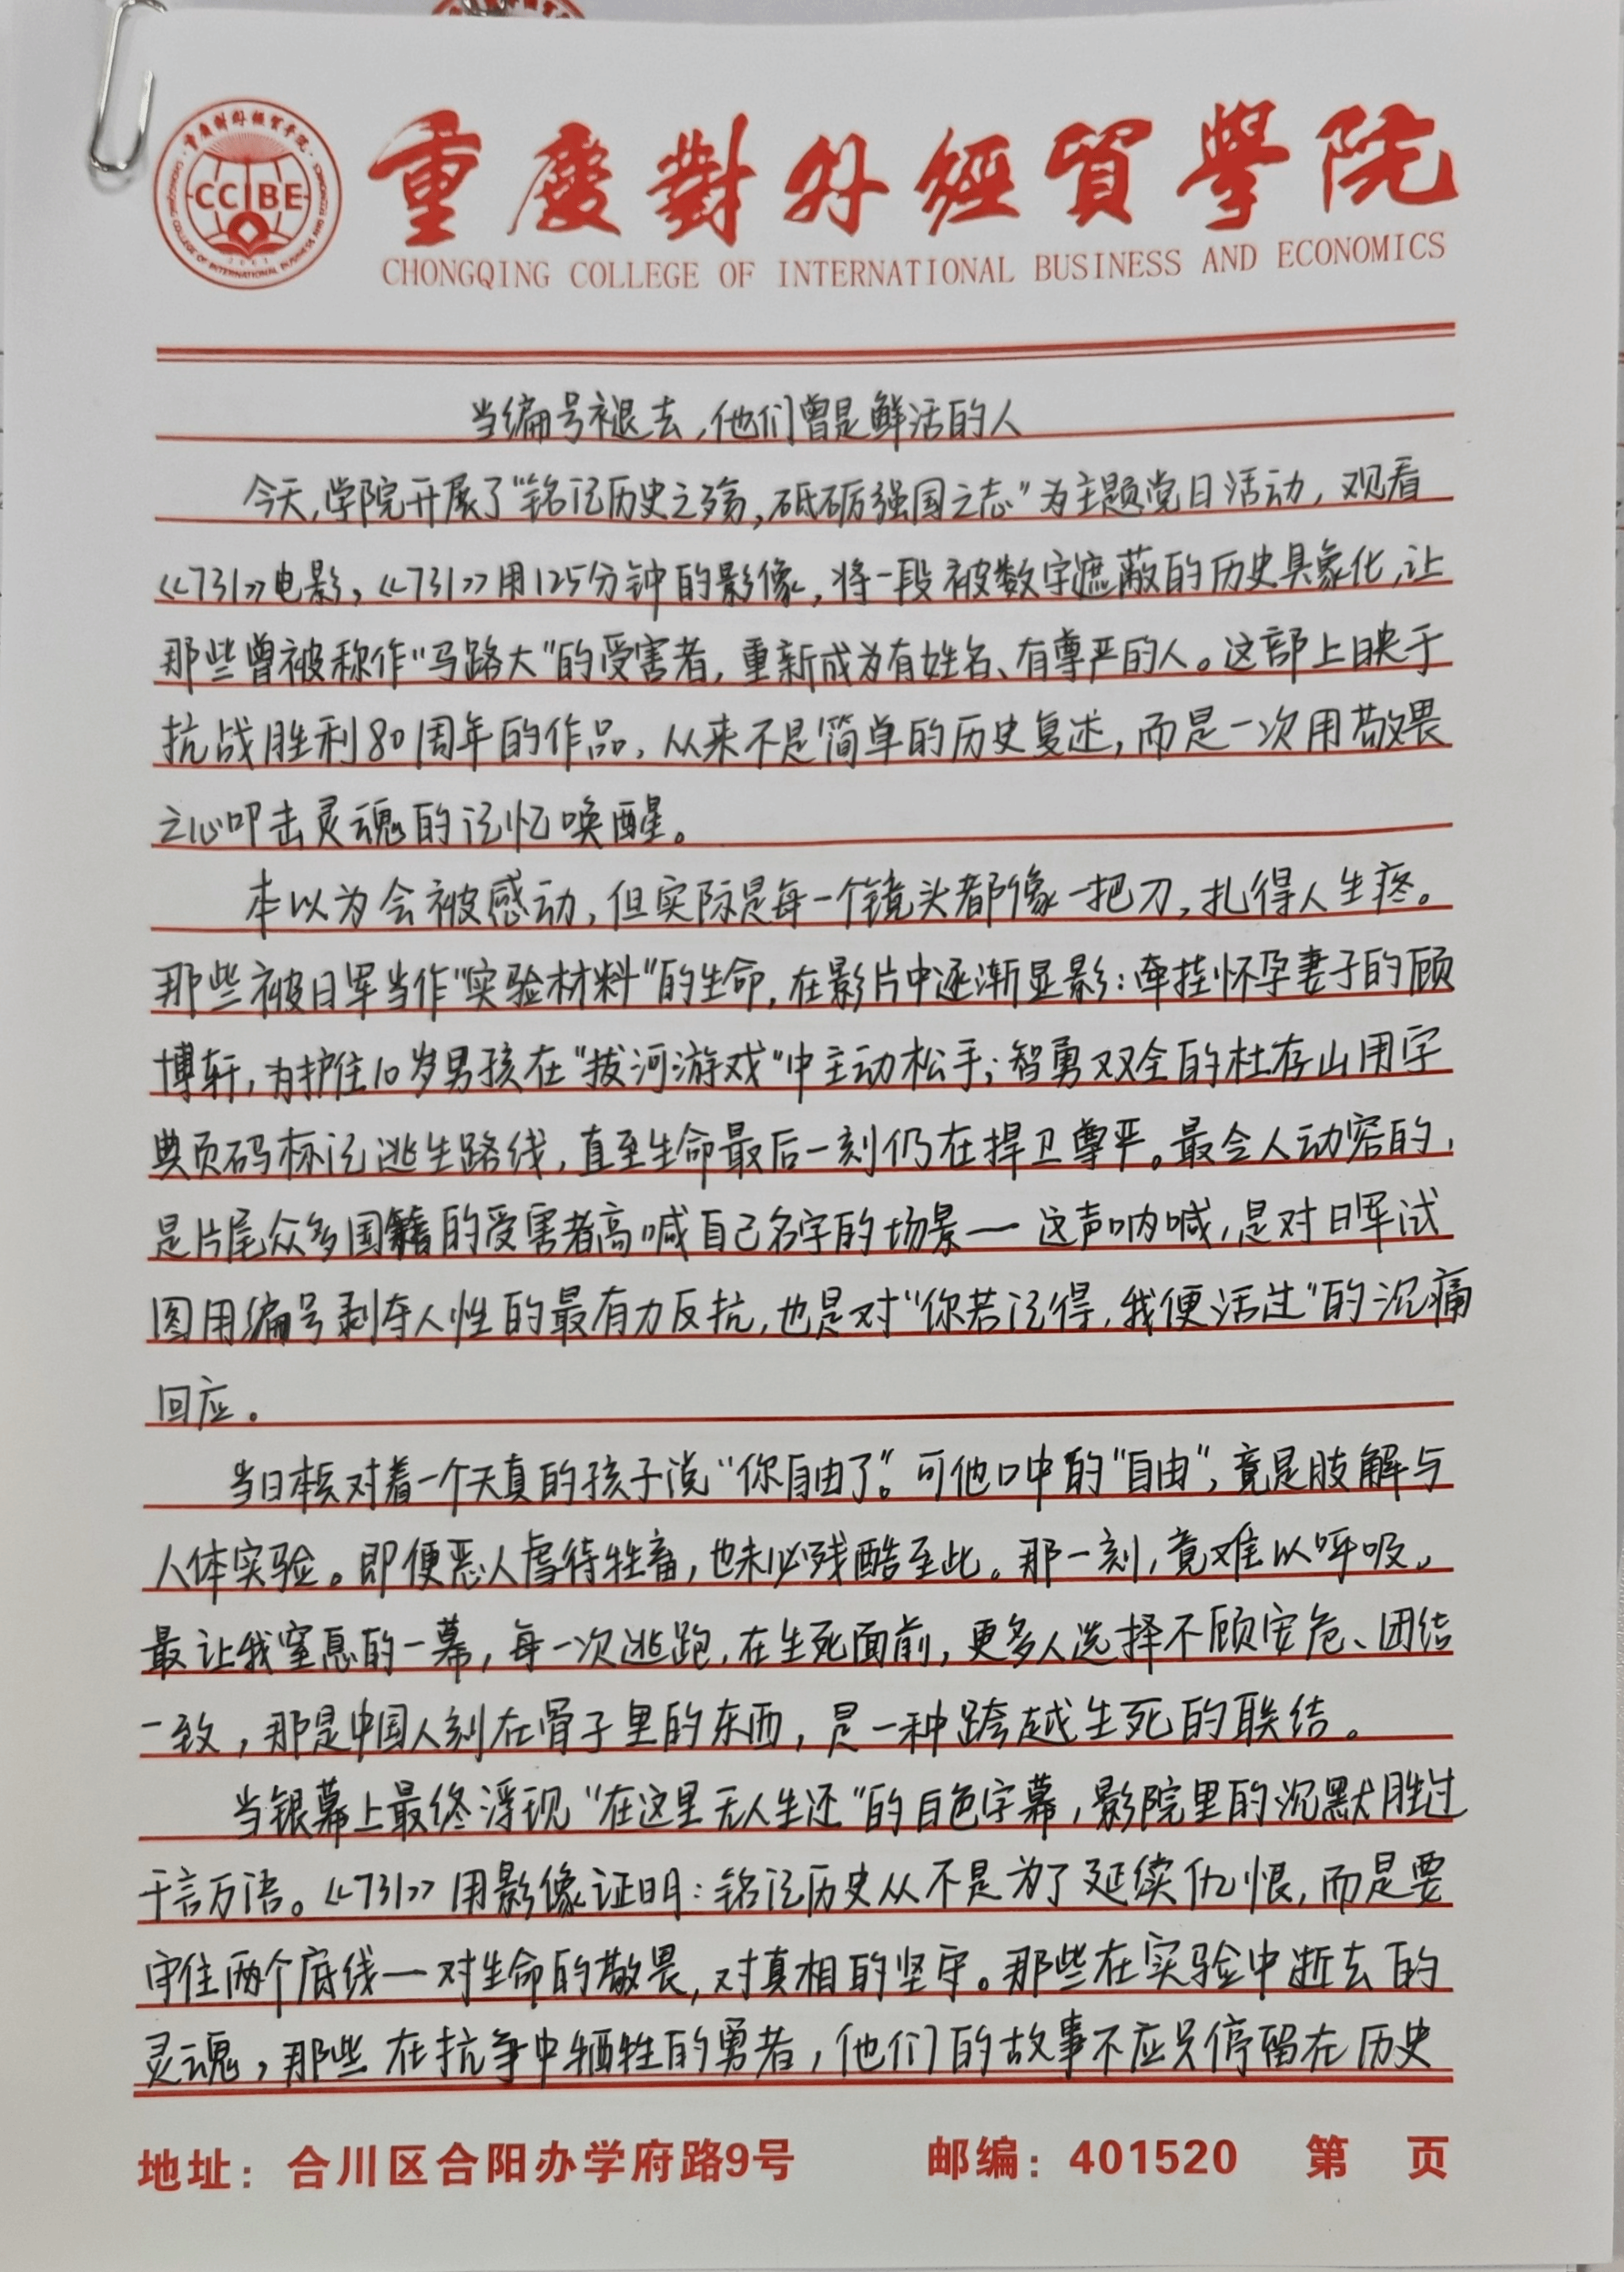 重慶對外經貿學院
CCIBE
CHONGQING COLLEGE OF INTERNATIONAL BUSINESS AND ECONOMICS
当编号褪去，他们曾是鲜活的人
今天，学院开展了“铭记历史之殇，砥砺强国之志”为主题党日活动，观看
《731》电影，《731》用125分钟的影像，将一段被数字遮蔽的历史具象化，让
那些曾被称作“马路大”的受害者，重新成为有姓名、有尊严的人。这部上映于
抗战胜利80周年的作品，从来不是简单的历史复述，而是一次用敬畏
之心叩击灵魂的记忆唤醒。
本以为会被感动，但实际是每一个镜头都像一把刀，扎得人生疼。
那些被日军当作“实验材料”的生命，在影片中逐渐显影：牵挂怀孕妻子的顾
博轩，为护住10岁男孩在“拔河游戏”中主动松手；智勇双全的杜存山用字
典页码标记逃生路线，直至生命最后一刻仍在捍卫尊严。最令人动容的，
是片尾众多国籍的受害者高喊自己名字的场景—这声呐喊，是对日军试
图用编号剥夺人性的最有力反抗，也是对“你若记得，我便活过”的沉痛
回应。
当日本兵对着一个天真的孩子说“你自由了”。可他口中的“自由”，竟是肢解与
人体实验。即便恶人虐待牲畜，也未必残酷至此。那一刻，竟难以呼吸。
最让我窒息的一幕，每一次逃跑，在生死面前，更多人选择不顾安危、团结
一致，那是中国人刻在骨子里的东西，是一种跨越生死的联结。
当银幕上最终浮现“在这里无人生还”的白色字幕，影院里的沉默胜过
千言万语。《731》用影像证明：铭记历史从不是为了延续仇恨，而是要
守住两个底线—对生命的敬畏，对真相的坚守。那些在实验中逝去的
灵魂，那些在抗争中牺牲的勇者，他们的故事不应只停留在历史
地址：合川区合阳办学府路9号 邮编：401520 第 页